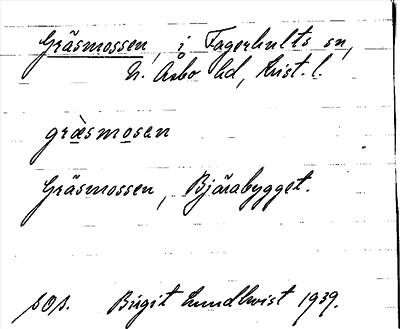 Gräsmossen, i Fagerhults sn,
N. Åsbo hd, Krist. l.
græ̀smosan
Gräsmossen, Bjärabygget.
sOs. Birgit Lundkvist 1939.